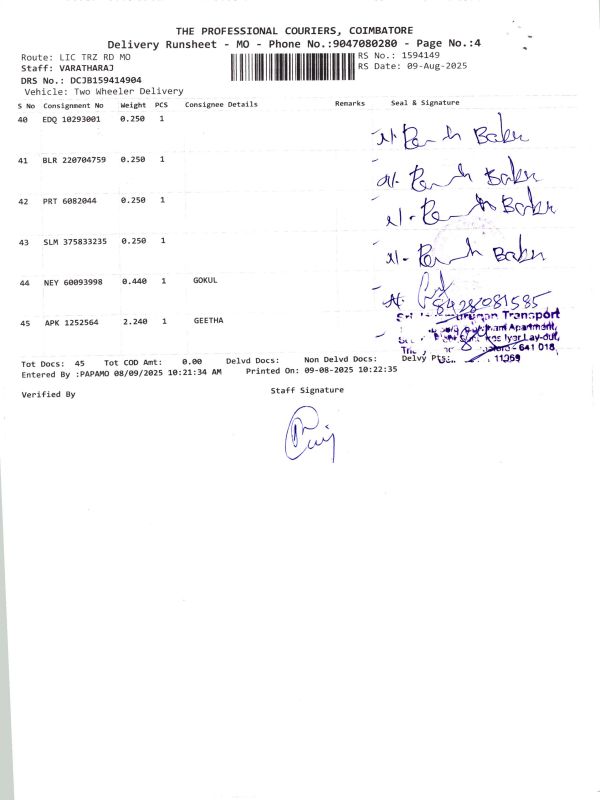 THE PROFESSIONAL COURIERS, COIMBATORE
Delivery Runsheet - MO - Phone No.:9047080280 - Page No.:4
Route: LIC TRZ RD MO RS No.: 1594149
Staff: VARATHARAJ RS Date: 09-Aug-2025
DRS No.: DCJB159414904
Vehicle: Two Wheeler Delivery
S No Consignment No Weight PCS Consignee Details Remarks Seal & Signature
40 EDQ 10293001 0.250 1
41 BLR 220704759 0.250 1
42 PRT 6082044 0.250 1
43 SLM 375833235 0.250 1
44 NEY 60093998 0.440 1 GOKUL
8428081585
45 APK 1252564 2.240 1 GEETHA
Transport
Apartment,
Iyer Lay-out,
- 641 018
Tot Docs: 45 Tot COD Amt: 0.00 Delvd Docs: Non Delvd Docs: Delvy
Entered By :PAPAMO 08/09/2025 10:21:34 AM Printed On: 09-08-2025 10:22:35
Verified By Staff Signature